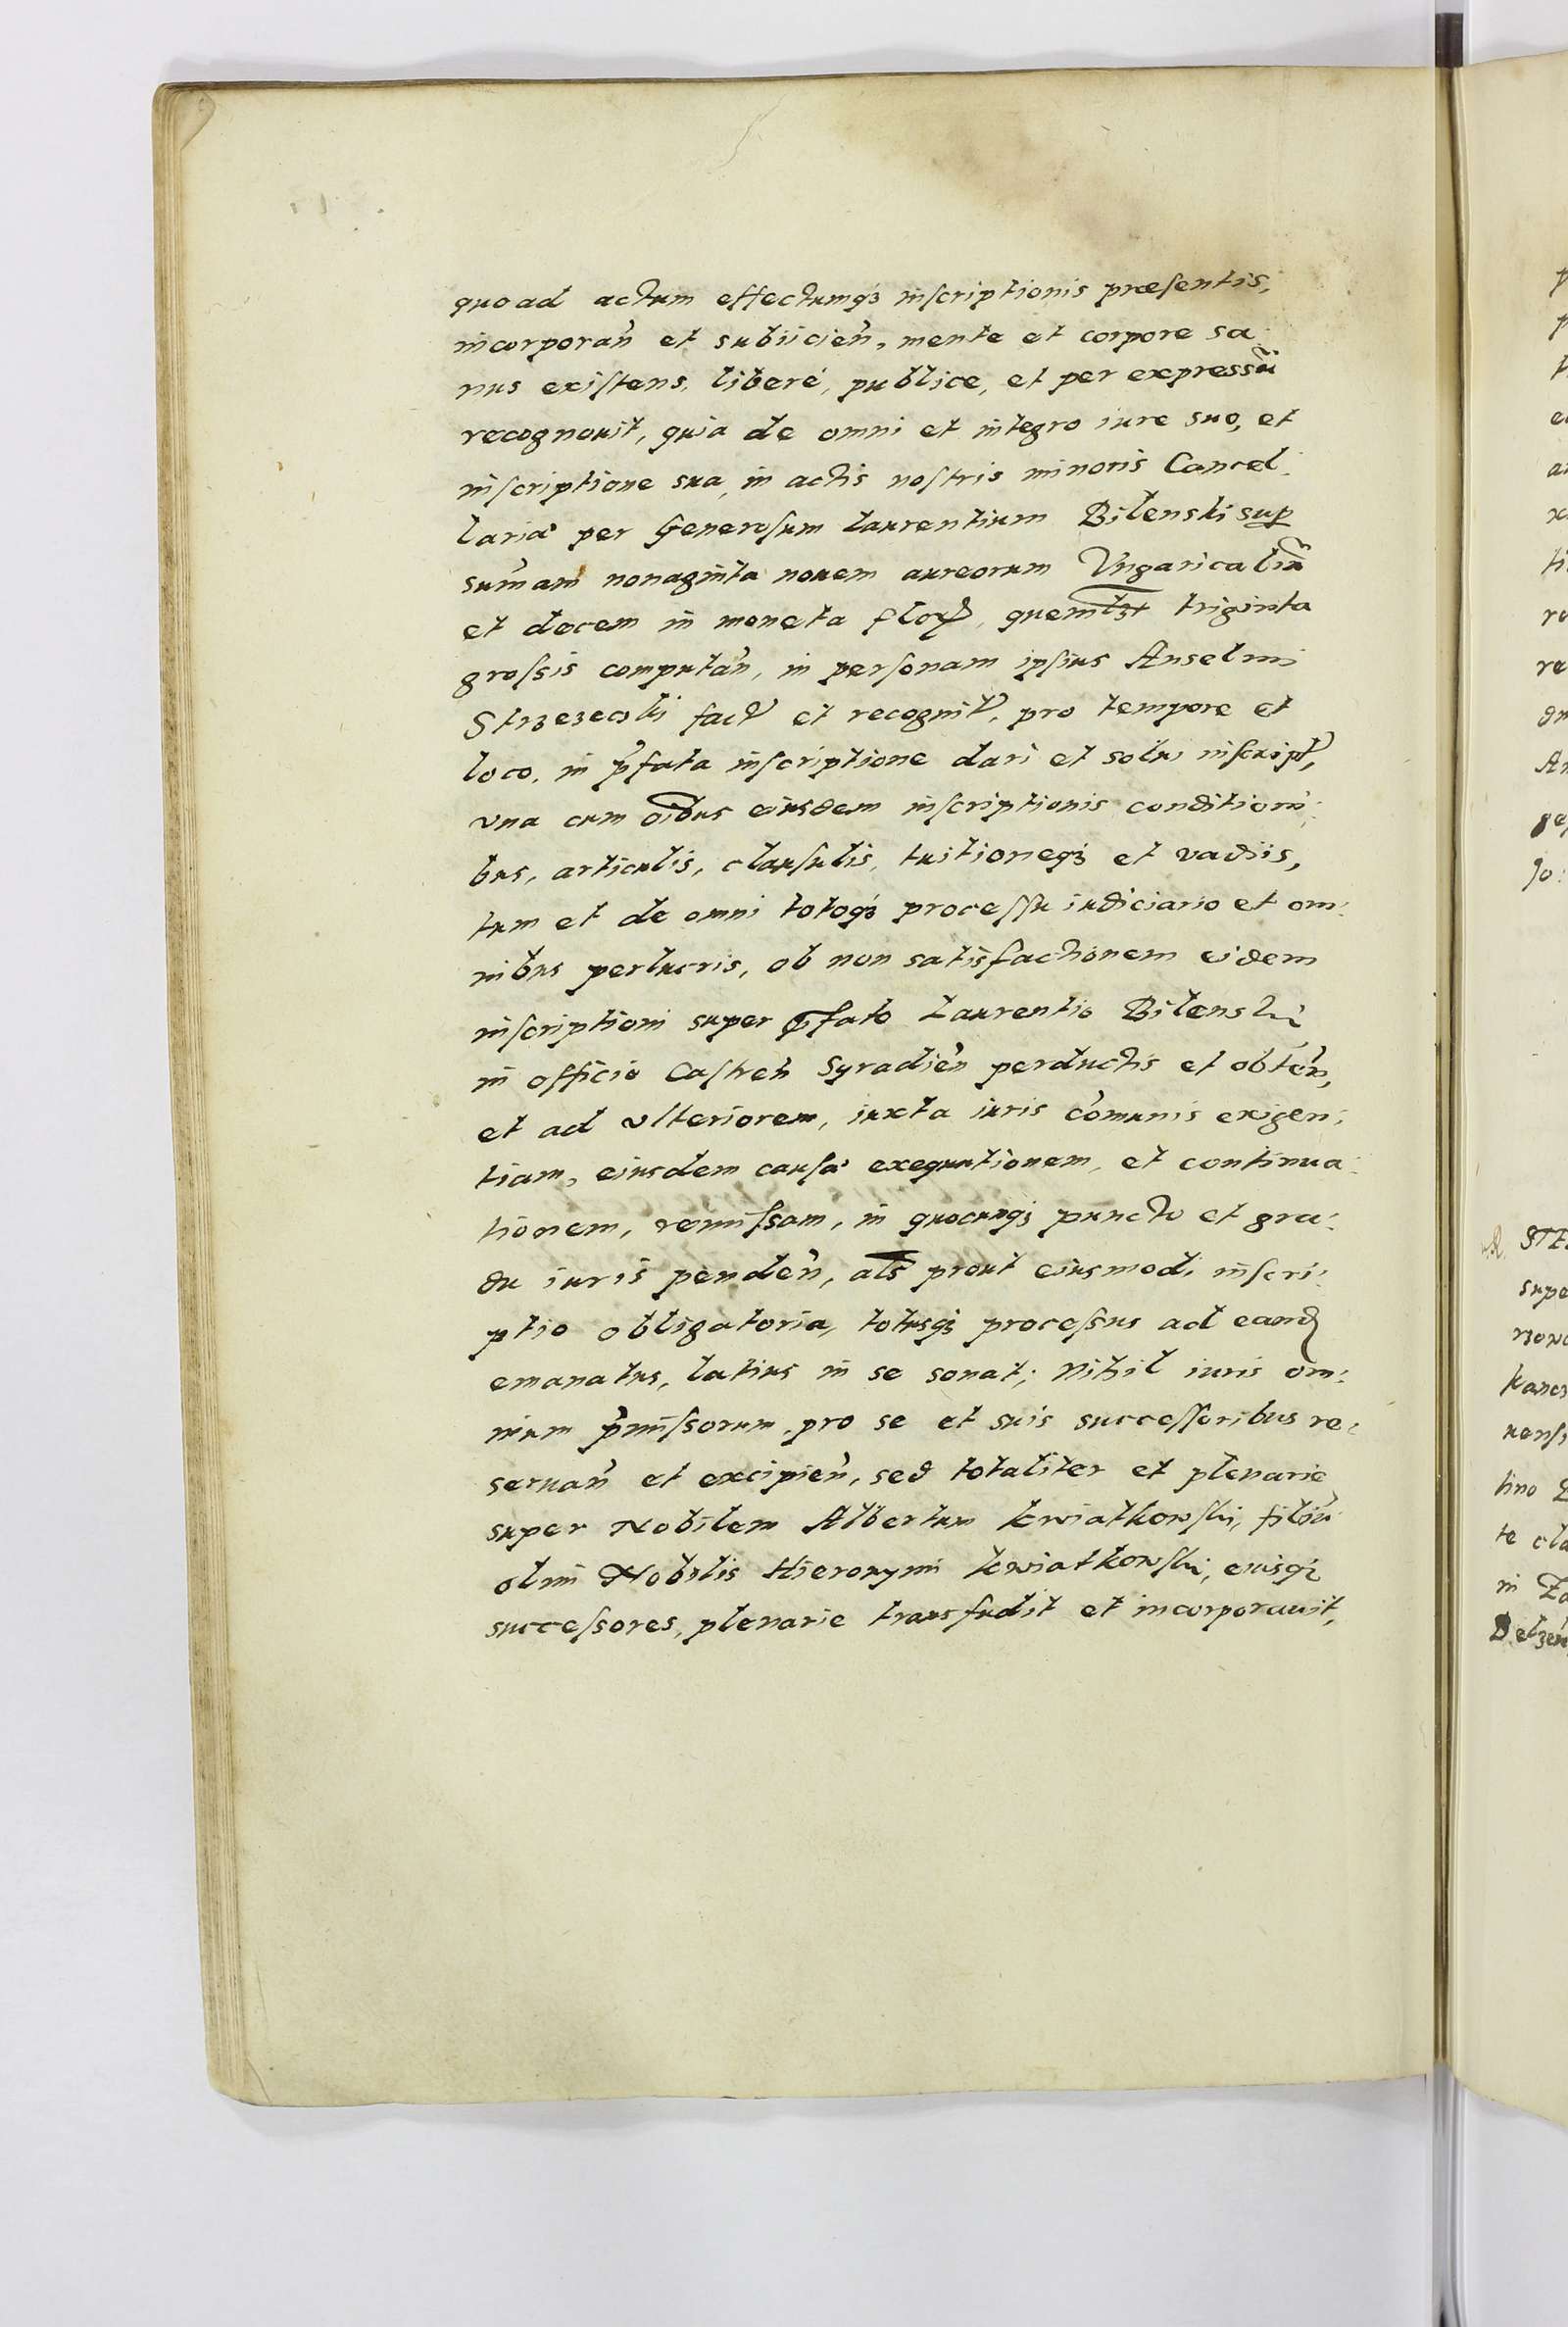 quoad actum effectumq₃ inscriptionis præsentis,
incorporañ et subiicieñ, mente et corpore sa
nus existens, liberé, publice, et per expressũ
recognouit, quia de omni et integro iure suo, et
inscriptione sua, in actis nostris minoris Cancel:
lariæ per Generosum Laurentium Bilenski sup
sum̃am nonaginta nouem aureorum Vngaricaliũ
et decem in moneta flor, quemlꝫt triginta
grossis computañ, in personam ipsius Anselmi
Strzezecski fact et recognit, pro tempore et
loco, in p̃fata inscriptione dari et solui inscript,
vna cum oi̅bus eiusdem inscriptionis conditioni:
bus, articulis, clausulis, tuitioneq₃ et vadiis,
tum et de omni totoq₃ processu iudiciario et om:
nibus perlucris, ob non satisfactionem eidem
inscriptioni super p̃fato Laurentio Bilenski
in officio Castreñ Syradieñ perductis et obteñ,
et ad vlteriorem, iuxta iuris com̃unis exigen:
tiam, eiusdem causæ exequutionem, et continua:
tionem, remissam, in quocunq₃ puncto et gra:
du iuris pendeñ, al̅s prout eiusmodi inscri:
ptio obligatoria, totusq₃ processus ad eand
emanatus, latius in se sonat; Nihil iuris om:
nium p̃missorum, pro se et suis successoribus re:
seruañ et excipieñ, sed totaliter et plenarie
super Nobilem Albertum Kwiatkowski, filiũ
olim Nobilis Hieronymi Kwiatkowski, eiusq₃
successores, plenarie transfudit et incorporauit,